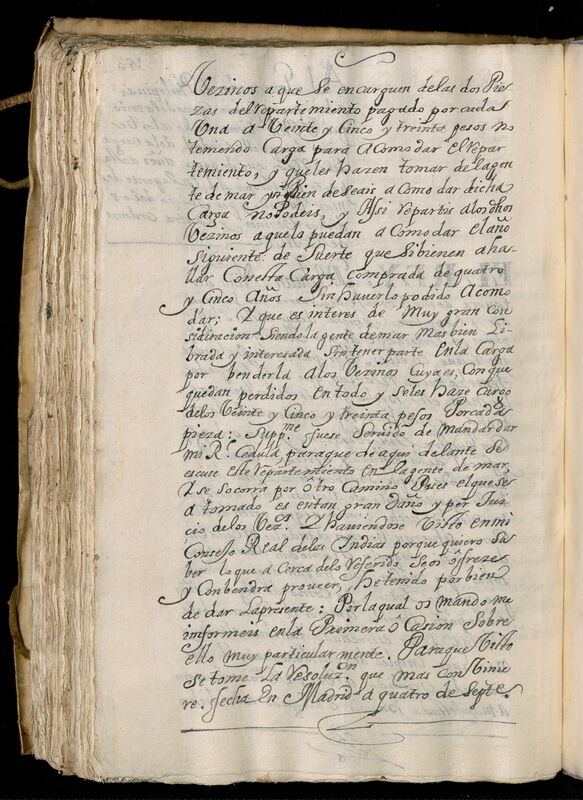 Vezinos a que se encarguen delas dos Pie-
zas del repartemiento pagado por cada
Una a Veinte y Cinco y treinta pesos no
teniendo Carga para Acomodar el repar-
temiento, y queles hazen tomar dela gen-
te de mar y si bien de seais acomodar dicha
Carga no Podeis, y Assi repartis alos dhos
Vezinos aquelo puedan acomodar el año
siguiente de suerte que sibienen aha-
llar Con esta Carga comprada de quatro
y Cinco Años Sin haverlo podido Acomo-
dar; Y que es interes de Muy gran con
sideracion siendo la gente de mar Mas bien Li-
brada y interesada sin tener parte En la Carga
por benderla alos Vezinos Cuya es, Con que
quedan perdidos En todo y seles haze Cargo
delos Veinte y Cinco y treinta pesos Por cada
pieza: Supp.me fuese Servido de Mandar dar
mi R.l Cedula, para que de aqui delante Se
escuse Este repartemiento En la gente de mar,
Y se socorra por ôtro Camino Pues el que se
a tomado es en tan gran Daño y per Jui-
cio delos Vez.os Y haviendose Visto en mi
Consejo Real delas Indias porque quiero Sa-
ber lo que a Cerca delo referido Se os ôfreze
y Conbendra proveer, he tenido por bien
de dar La presente: Por la qual os mando me
imformeis en la Primera ôcasion Sobre
ello muy particularmente, Para que Visto
Se tome La resoluz.on que mas Conbinie
re. fecha En Madrid a quatro de Septe.